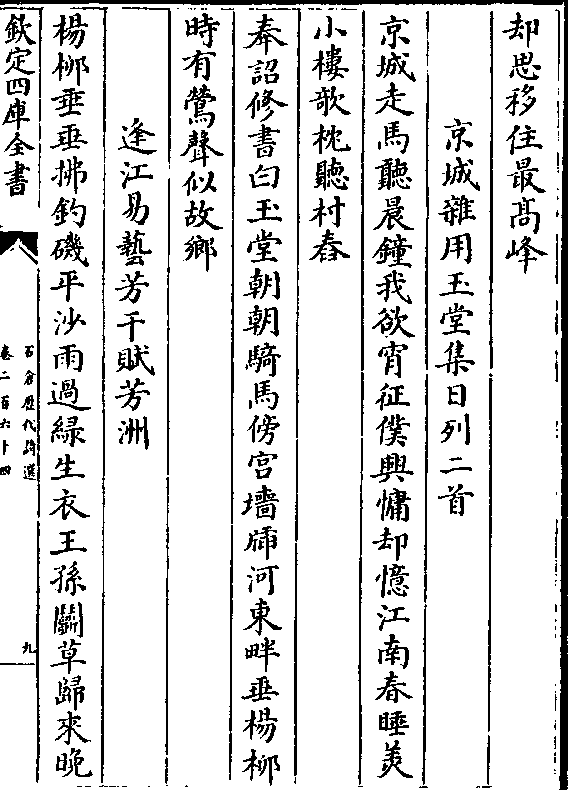 却思移住最髙峰
京城雜用玉堂集日列二首
京城走馬聽晨鐘我欲宵征僕興慵却憶江南春睡美
小樓欹枕聽村舂
奉詔修書白玉堂朝朝騎馬傍宫墻牐河東畔垂楊柳
時有鶯聲似故鄉
逢江易藝芳干賦芳洲
楊柳垂垂拂釣磯平沙雨過緑生衣王孫鬭草歸來晚
欽定四庫全書
石倉歴代詩選
卷二百六十四
九